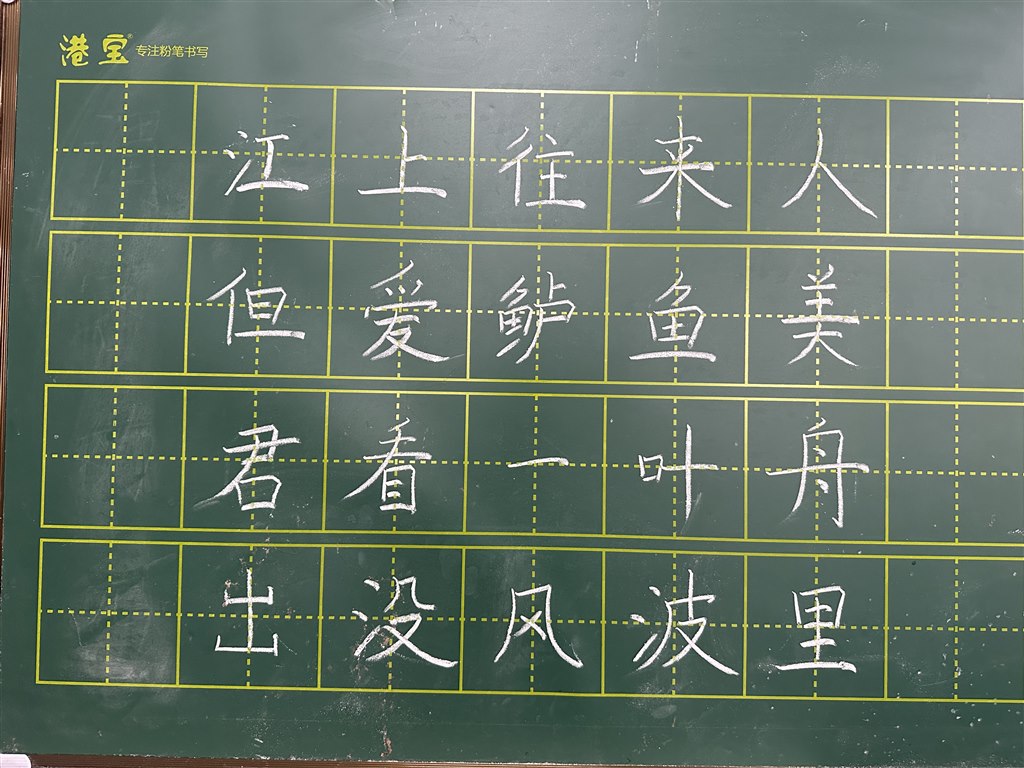 港宝® 专注粉笔书写
江上往来人
但爱鲈鱼美
君看一叶舟
出没风波里